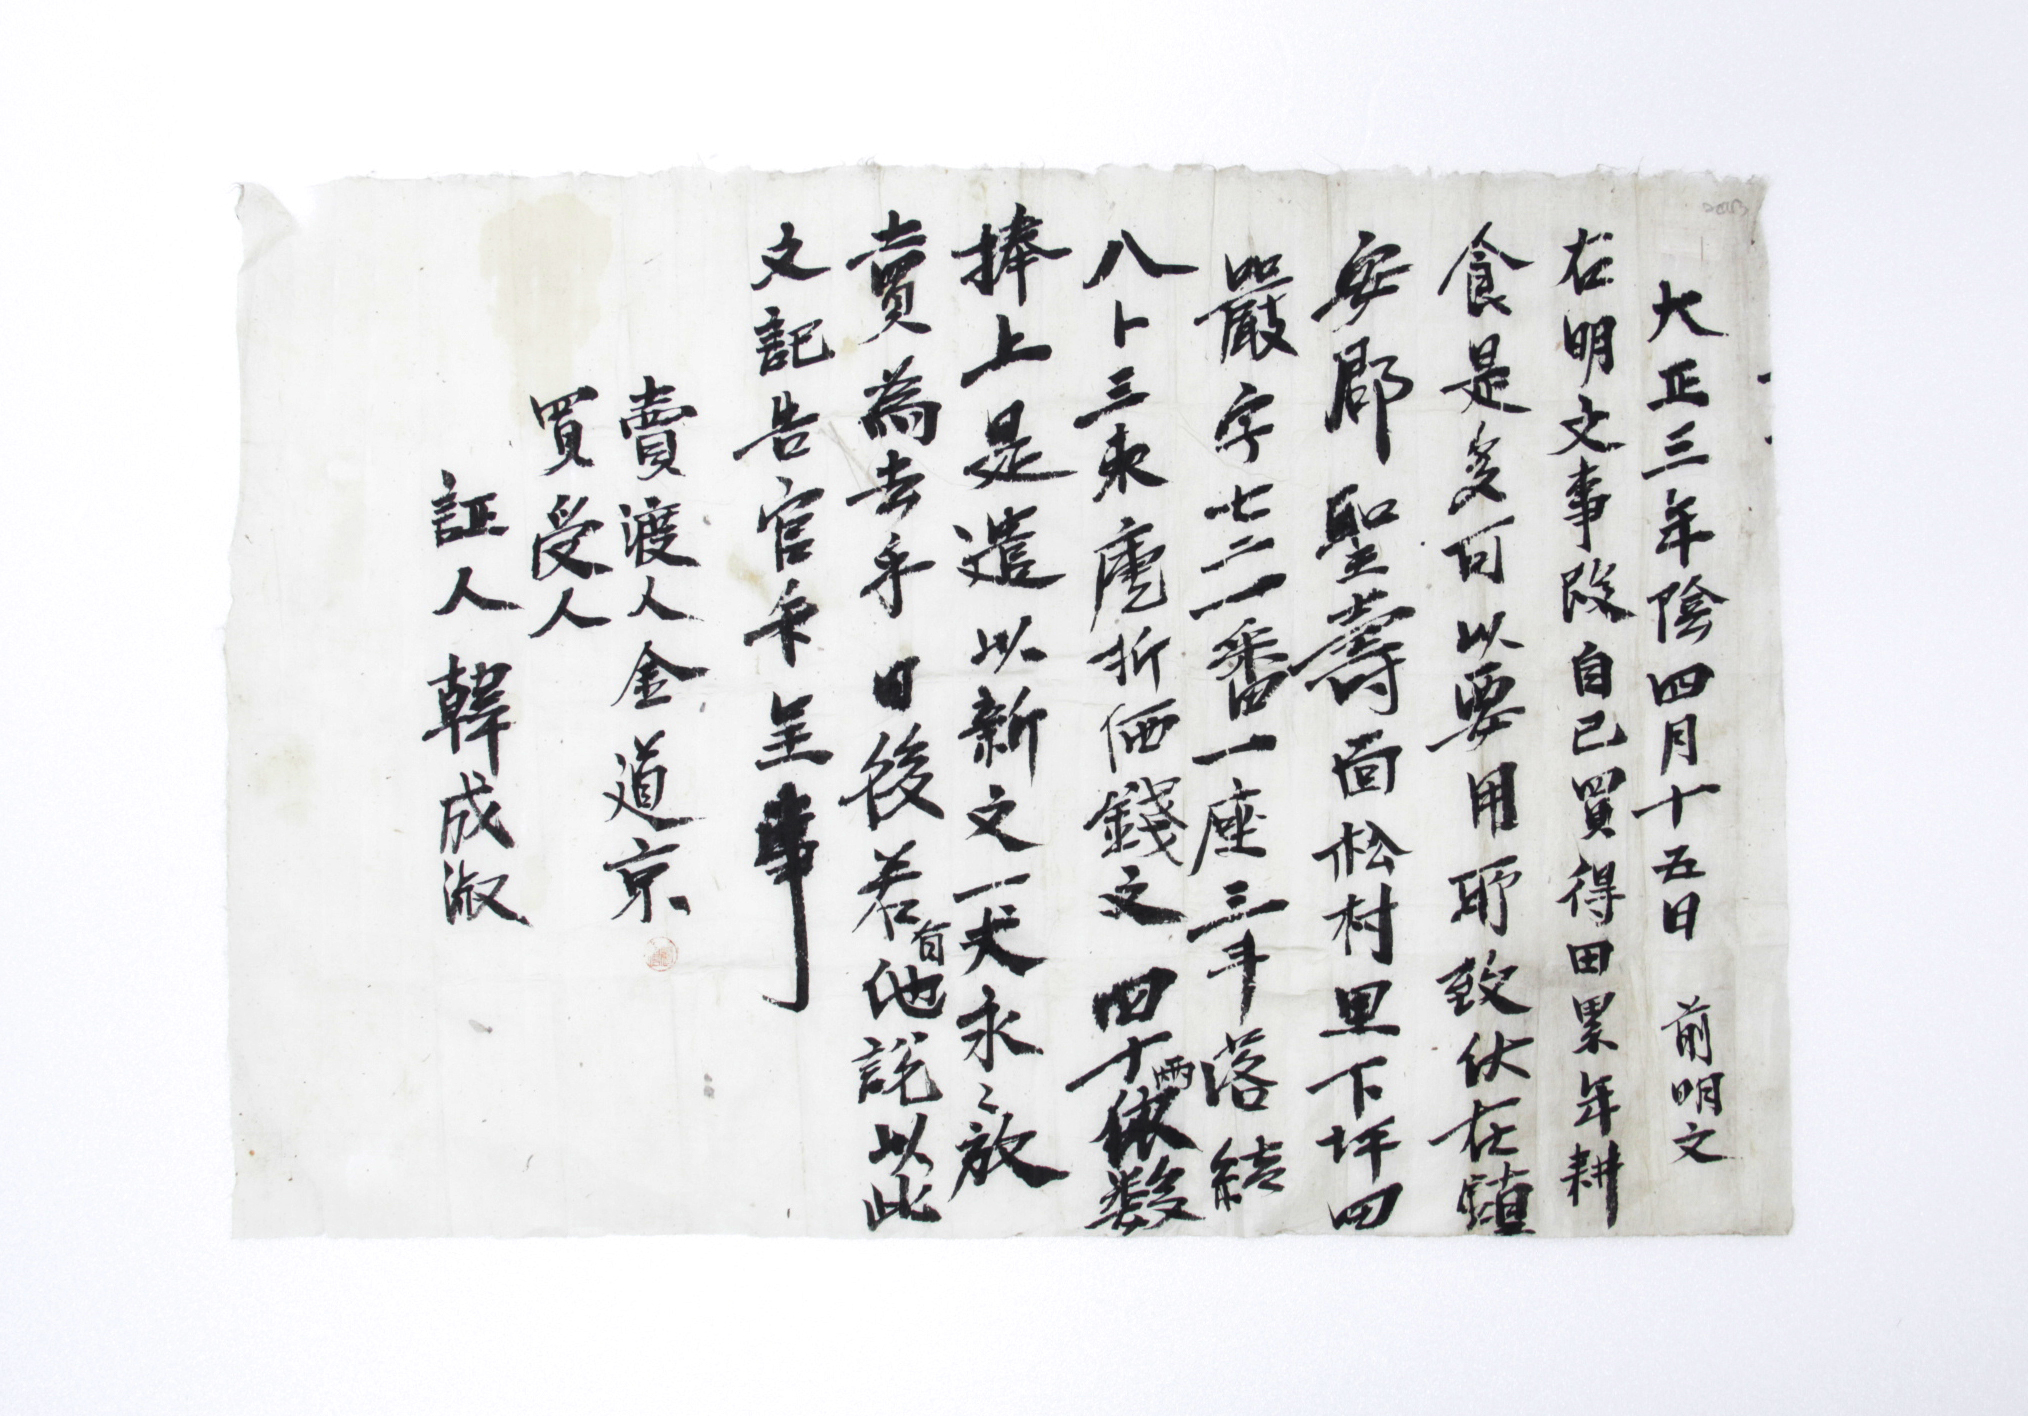 大正三年陰四月十五日 前明文
右明文事段自己買得田累年耕
食是多可以要用所致伏在鎮
安郡聖壽面松村里下坪四
嚴字七二一番一座三斗落結
八卜三束庫折価錢文四十兩依数
捧上是遣以新文一丈永〻放
賣為去乎日後若有他說以此
文記告官卞呈事
賣渡人金道京
買受人
証人韓成淑